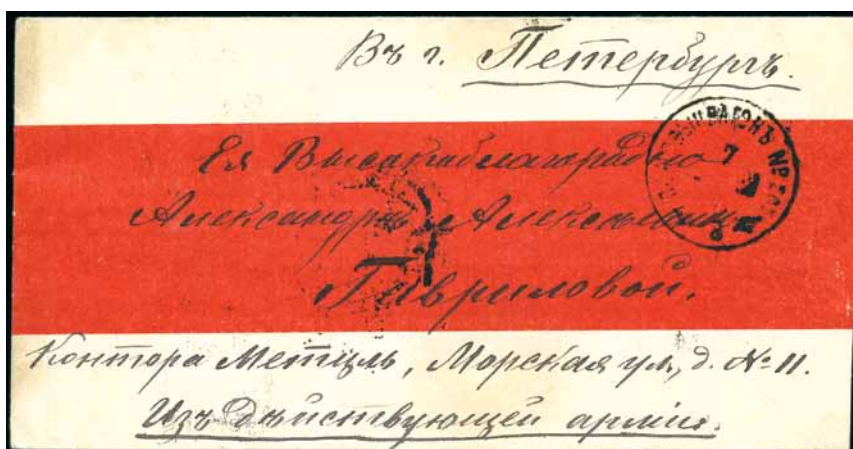 Въ г. Петербургъ.
Ея Высокоблагородию
Александръ Алексѣевнѣ
Гавриловой.
Контора Метцль, Морская ул., д. № 11.
Изъ дѣйствующей арміи.
ВАГОНЪ №
7